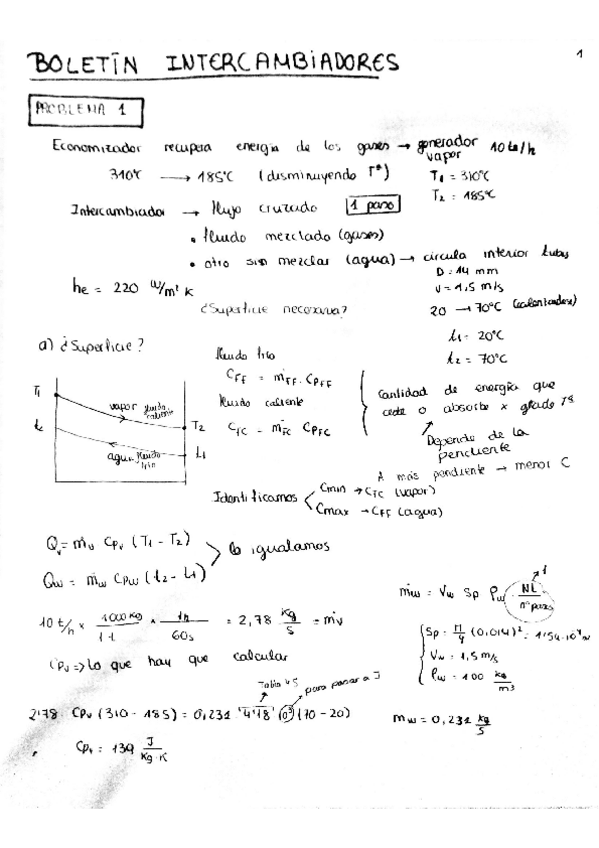 1
BOLETÍN INTERCAMBIADORES
PROBLEMA 1
Economizador recupera energía de los gases → generador vapor 10 tn/h
310ºC → 185ºC (disminuyendo Tª)
T1 = 310ºC
T2 = 185ºC
Intercambiador → flujo cruzado 1 paso
• fluido mezclado (gases)
• otro sin mezclar (agua) → circula interior tubos
D = 14 mm
v = 1,5 m/s
he = 220 W/m² K
20 → 70ºC
¿Superficie necesaria?
t1 = 20ºC
t2 = 70ºC
a) ¿Superficie?
fluido frío
CFF = ṁFF · CPFF
fluido caliente
CFC = ṁFC CPFC
cantidad de energía que
cede o absorbe x grado Tª
Depende de la
pendiente
A más pendiente → menor C
T1
vapor fluido caliente
T2
t2
agua fluido frío
t1
Identificamos
Cmin → CFC (vapor)
Cmax → CFF (agua)
Qv = ṁv Cpv (T1 - T2)
Qw = ṁw Cpw (t2 - t1)
lo igualamos
ṁw = Vw Sp ρw · NL / nº pasos
1
10 t/h x 1000 KG / 1 t x 1h / 60s = 2,78 kg/s = ṁv
Sp = π/4 (0,014)² = 1'54·10⁻⁴ m
Vw = 1,5 m/s
ρw = 100 kg/m3
Cpv => lo que hay que calcular
Tabla 45
para pasar a J
2'78 · Cpv (310 - 185) = 0,231 · 4'18 · 10³ (70 - 20)
ṁw = 0,231 kg/s
Cpv = 139 J / Kg·K